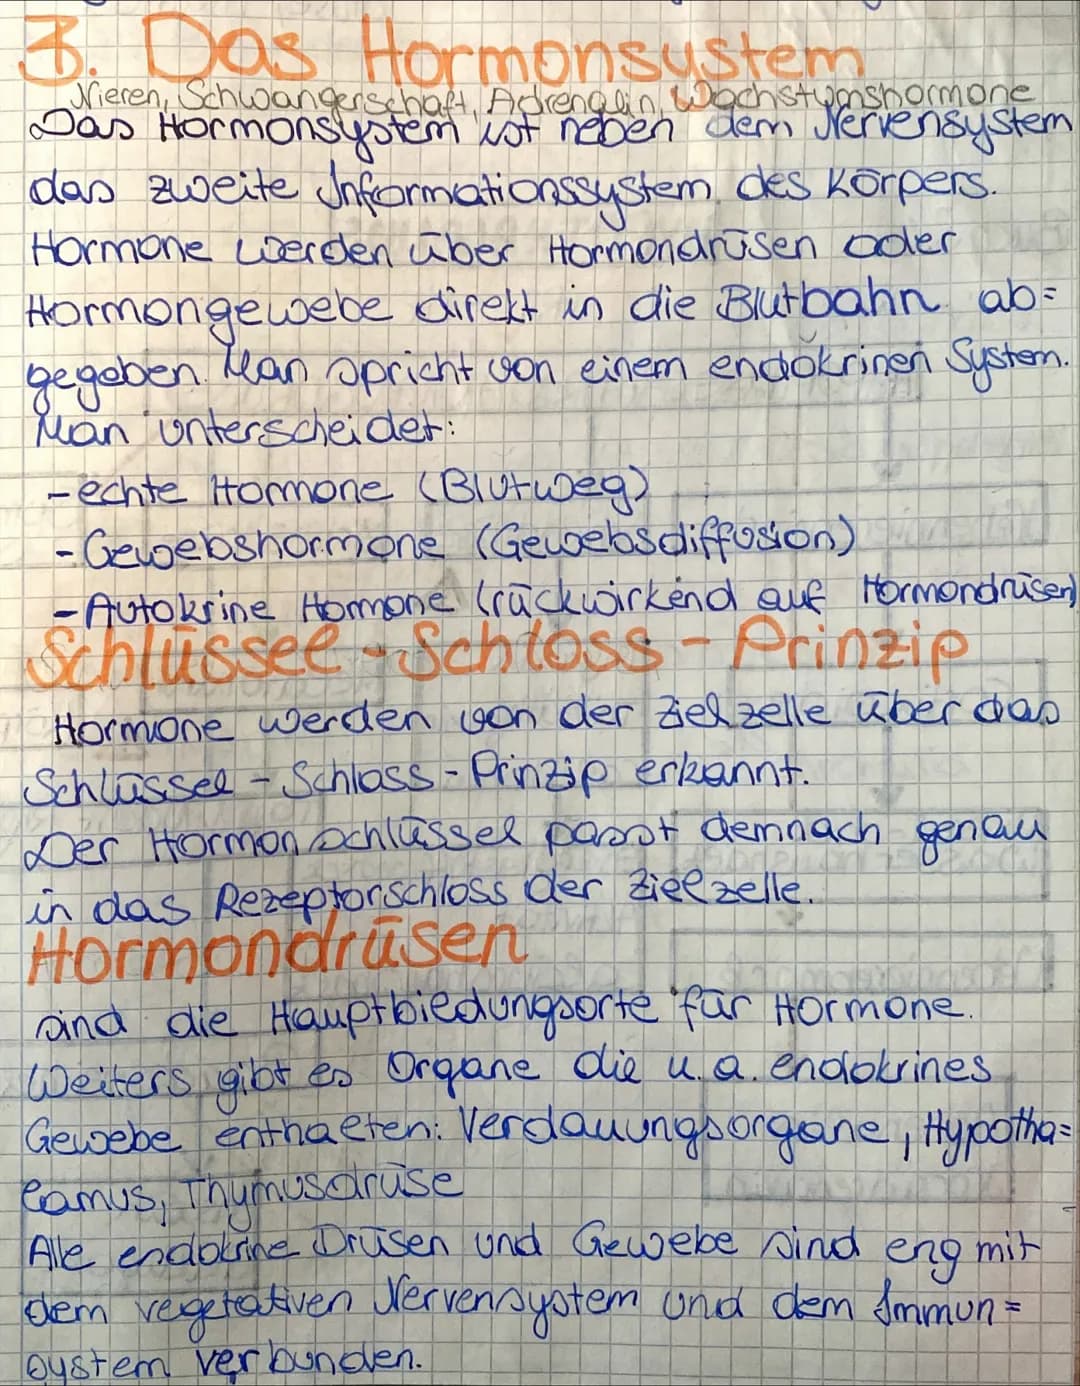 3. Das Hormonsystem
Nieren, Schwangerschaft, Adrenalin, Wachstumshormone
Das Hormonsystem ist neben dem Nervensystem
das zweite Informationssystem des Körpers.
Hormone werden über Hormondrüsen oder
Hormongewebe direkt in die Blutbahn ab=
gegeben. Man spricht von einem endokrinen System.
Man unterscheidet:
- echte Hormone (Blutweg)
- Gewebshormone (Gewebsdiffusion)
- Autokrine Hormone (rückwirkend auf Hormondrüsen)
Schlüssel-Schloss-Prinzip
Hormone werden von der Zielzelle über das
Schlüssel-Schloss-Prinzip erkannt.
Der Hormonschlüssel passt demnach genau
in das Rezeptorschloss der Zielzelle.
Hormondrüsen
sind die Hauptbiedungsorte für Hormone.
Weiters gibt es Organe die u.a. endokrines
Gewebe enthalten: Verdauungsorgane, Hypotha=
lamus, Thymusdrüse
Alle endokrine Drüsen und Gewebe sind eng mit
dem vegetativen Nervensystem und dem Immun=
system verbunden.